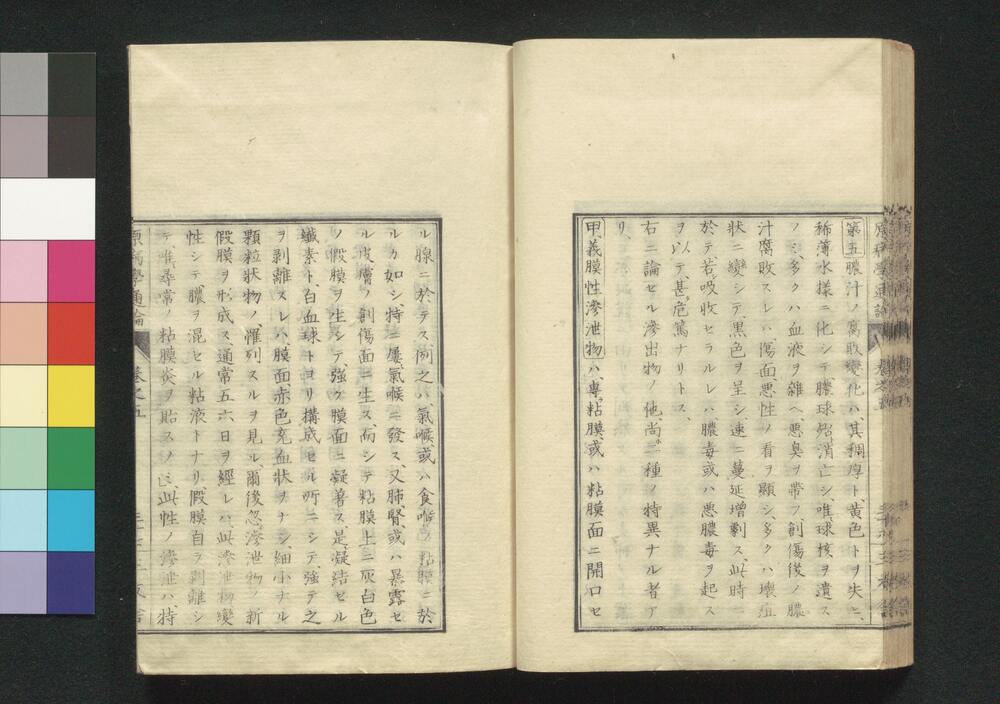 第五膿汁ノ腐敗變化ハ其稠厚ト黄色トヲ失ニ、
稀薄水樣ニ化シテ膿球熔消亡シ、唯球核ヲ遺ス
ノミ、多クハ血液ヲ雜ヘ悪臭ヲ帶フ創傷後ノ膿
汁腐敗スレハ傷面悪性ノ看ヲ顯シ、多クハ壊疽
狀ニ變シテ黒色ヲ呈シ速ニ蔓延増劇ス、此時ニ
於テ若吸收セラルレハ膿毒或ハ悪膿毒ヲ起ス
ヲ以テ、甚危篤ナリトス、
右ニ論セル滲出物ノ他、尚二種ノ特異ナル者ア
リ、
甲義膜性滲泄物ハ、專粘膜、或ハ粘膜面ニ開口セ
ル腺ニ於テス例之ハ、氣喉或ハ食喉ノ粘膜ニ於
ルカ如シ、特ニ屢氣喉ニ發ス、又肺腎或ハ暴露セ
ル皮膚ノ創傷面ニ生ス、而シテ粘膜上ニ灰白色
ノ假膜ヲ生シテ、強ク膜面ニ凝着ス是凝結セル
纖素ト、白血球トヨリ構成セル所ニシテ、強テ之
ヲ剥離スレハ、膜面赤色充血狀ヲナシ、細小ナル
顆粒狀物ノ、羅列スルヲ見ル、爾後忽滲泄物ノ新
假膜ヲ形成ス、通常五六日ヲ經レハ、此滲泄物變
性シテ膿ヲ混セル粘液トナリ、假膜自ラ剥離シ
テ、唯尋常ノ粘膜炎ヲ貽スノミ、此性ノ滲泄ハ、特
原病學通論 卷之五